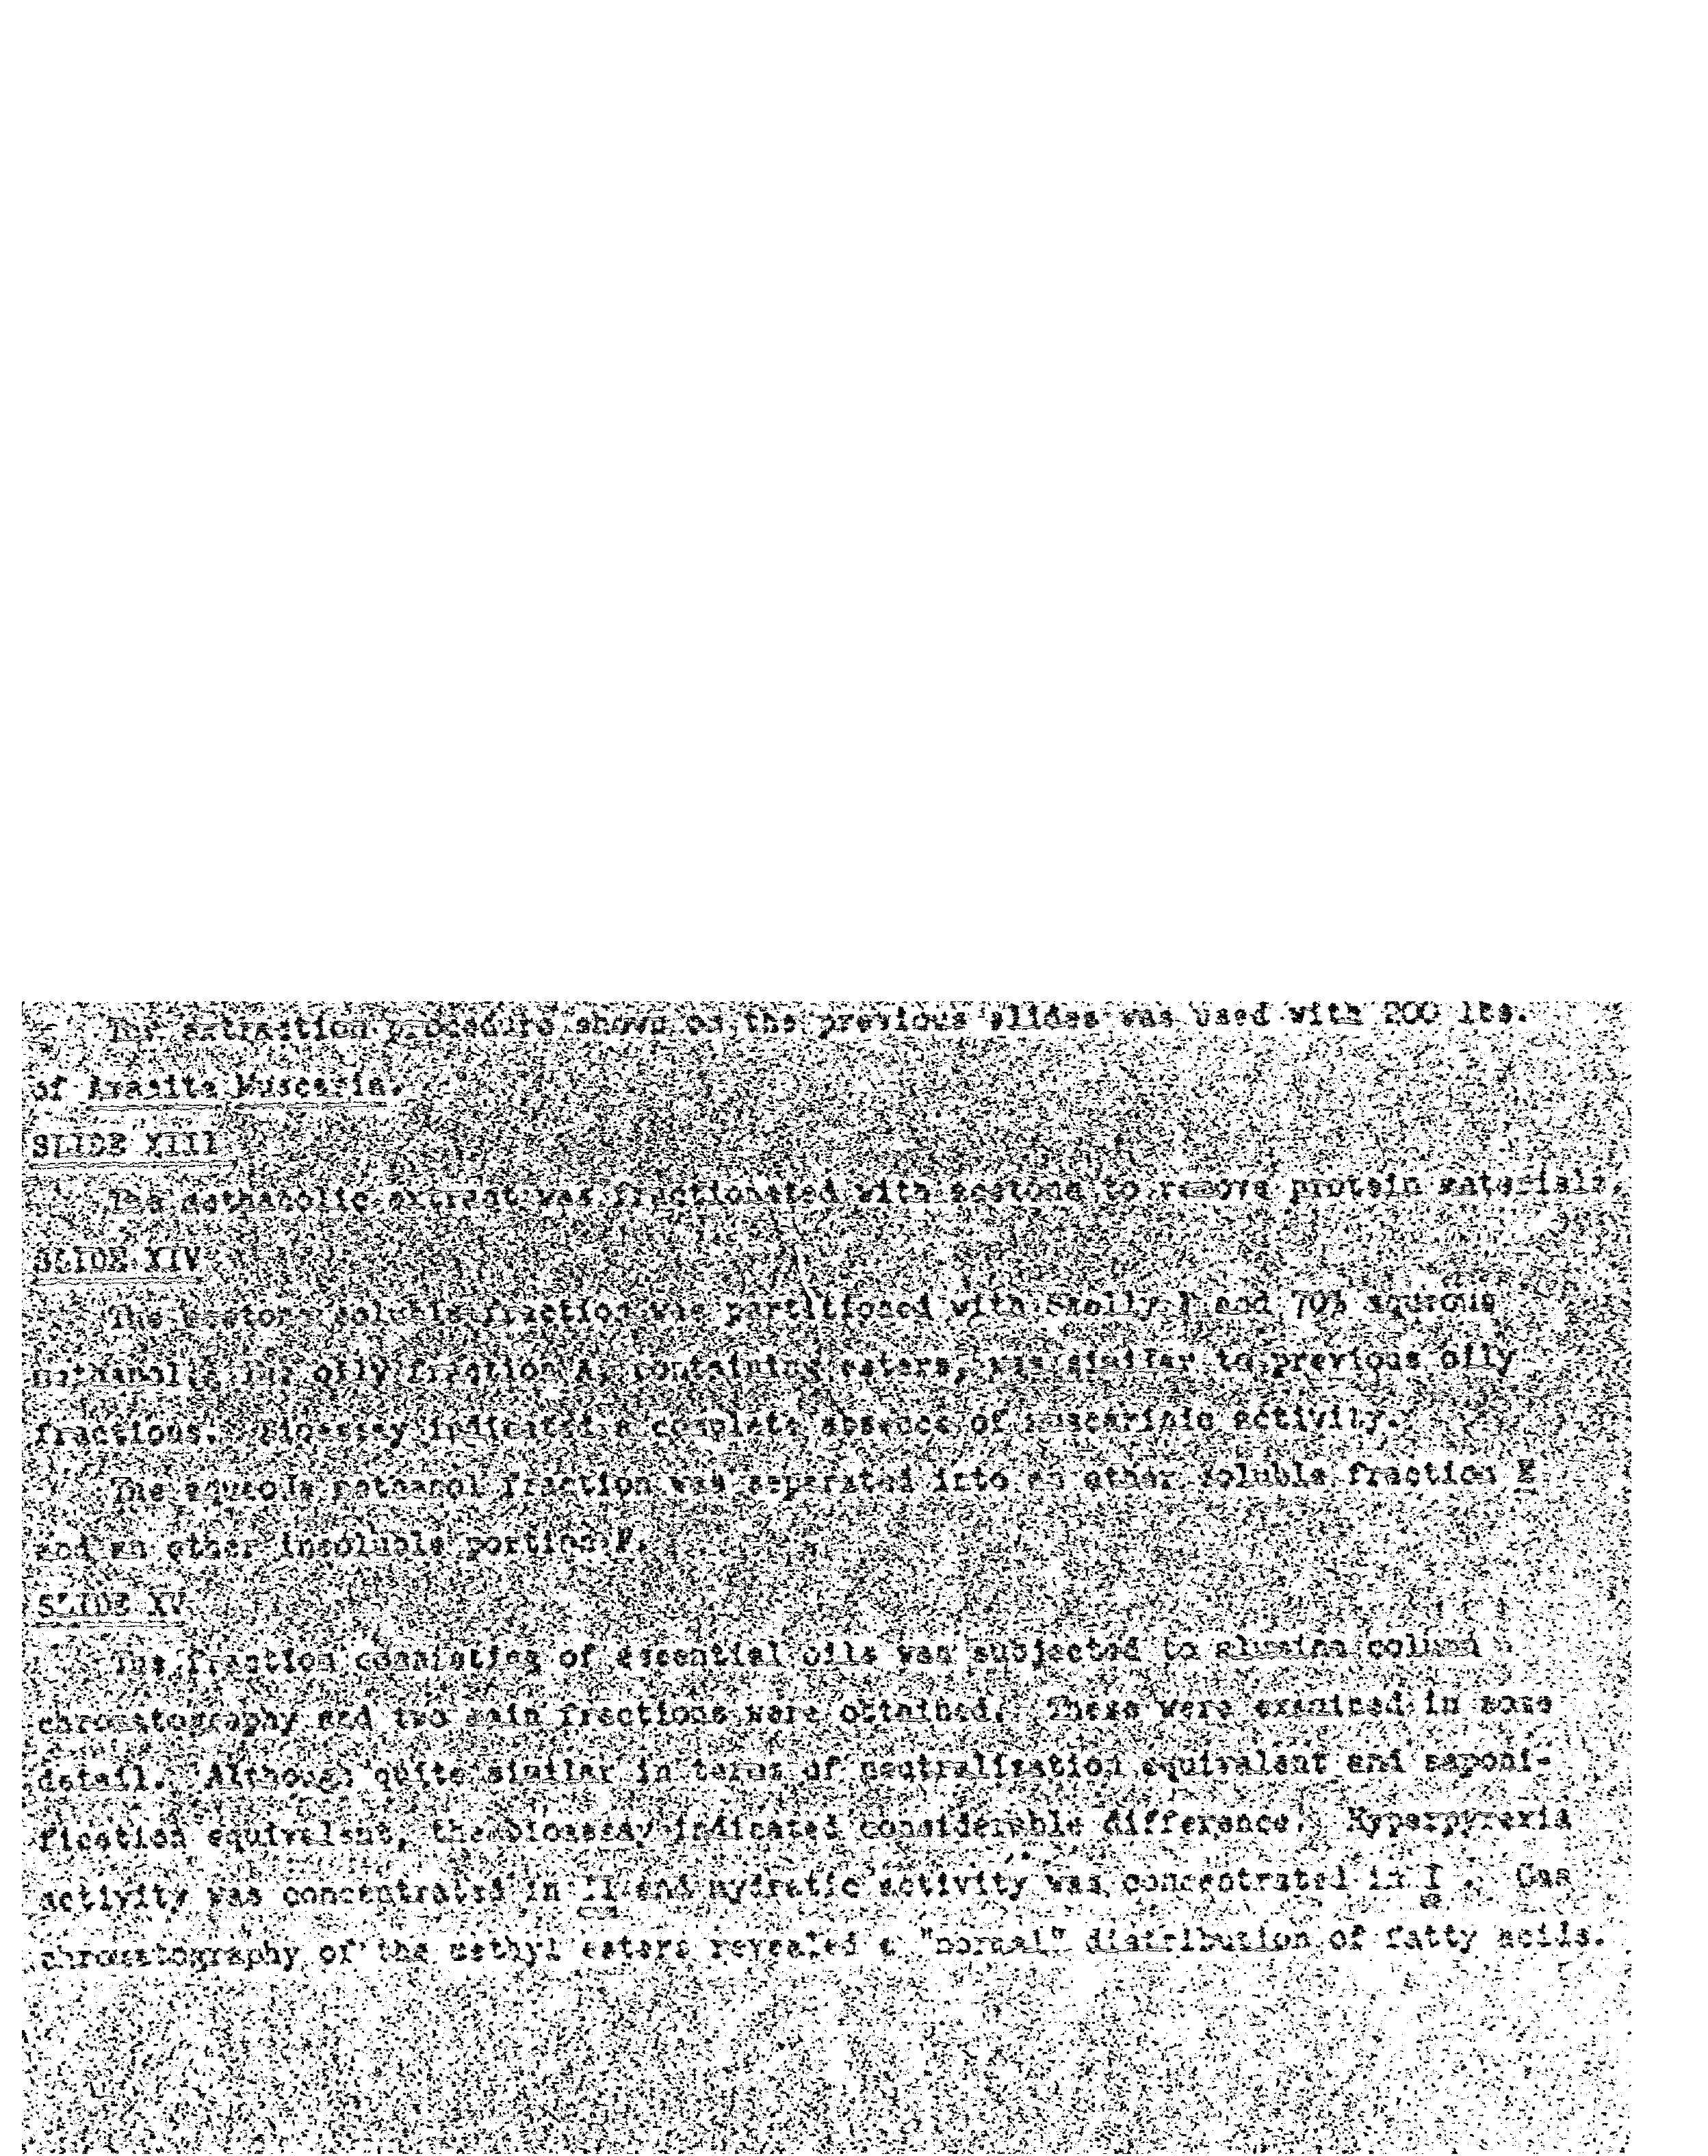 The extraction procedure shown on the previous slides was used with 200 lbs.
of Amanita Muscaria.
SLIDE XIII
The methanolic extract was fractionated with acetone to remove protein materials.
SLIDE XIV
The acetone soluble fraction was partitioned with Skelly B and 70% aqueous
methanol. The oily fraction A, containing esters, was similar to previous oily
fractions. Bio-assay indicated a complete absence of muscarinic activity.
The aqueous methanol fraction was separated into an ether soluble fraction E
and an ether insoluble portion F.
SLIDE XV
The fraction consisting of essential oils was subjected to alumina column
chromatography and two main fractions were obtained. These were examined in some
detail. Although quite similar in terms of neutralization equivalent and saponi-
fication equivalent, the bioassay indicated considerable difference. Hyperpyrexia
activity was concentrated in II and mydratic activity was concentrated in I . Gas
chromatography of the methyl esters revealed a "normal" distribution of fatty acids.